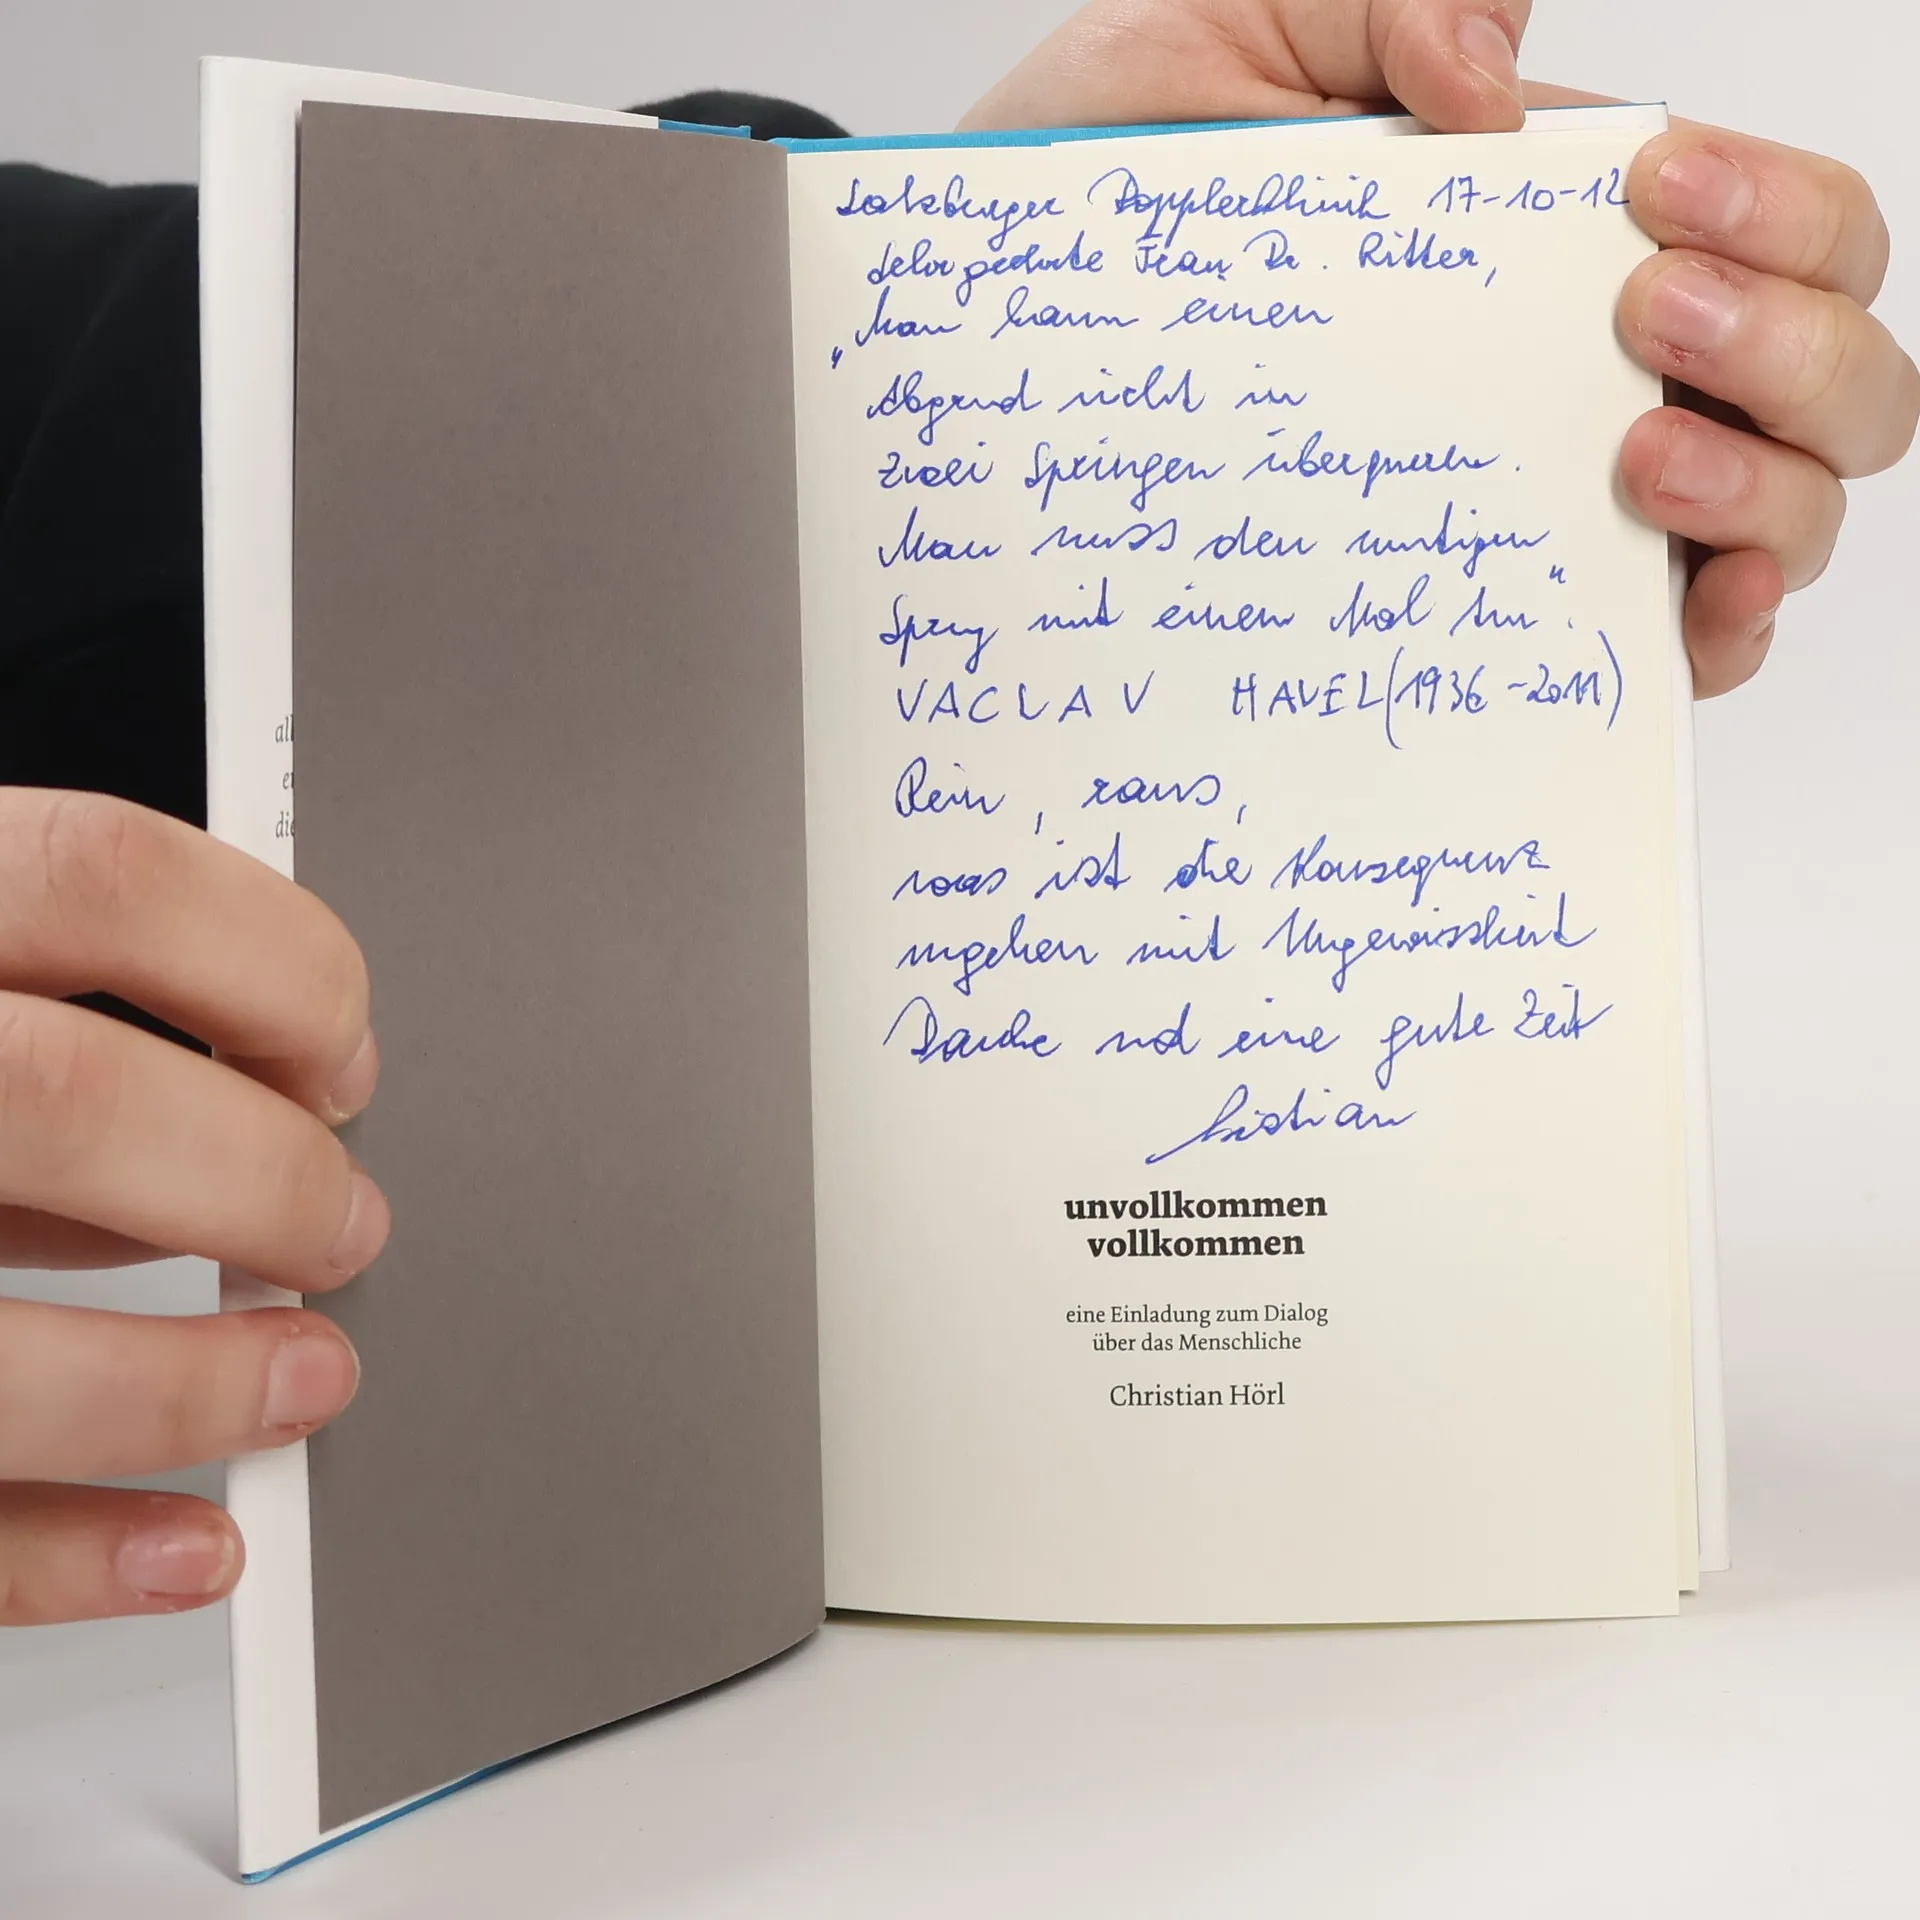 Salzburger Dopplerklinik 17-10-12
Sehr geehrte Frau Dr. Ritter,
„Man kann einen
Abgrund nicht in
zwei Springen überqueren.
Man muss den mutigen
Sprung mit einem Mal tun“.
VACLAV HAVEL (1936-2011)
Rein, raus,
was ist die Konsequenz
umgehen mit Ungewissheit
Danke und eine gute Zeit
all
die
unvollkommen
vollkommen
eine Einladung zum Dialog
über das Menschliche
Christian Hörl